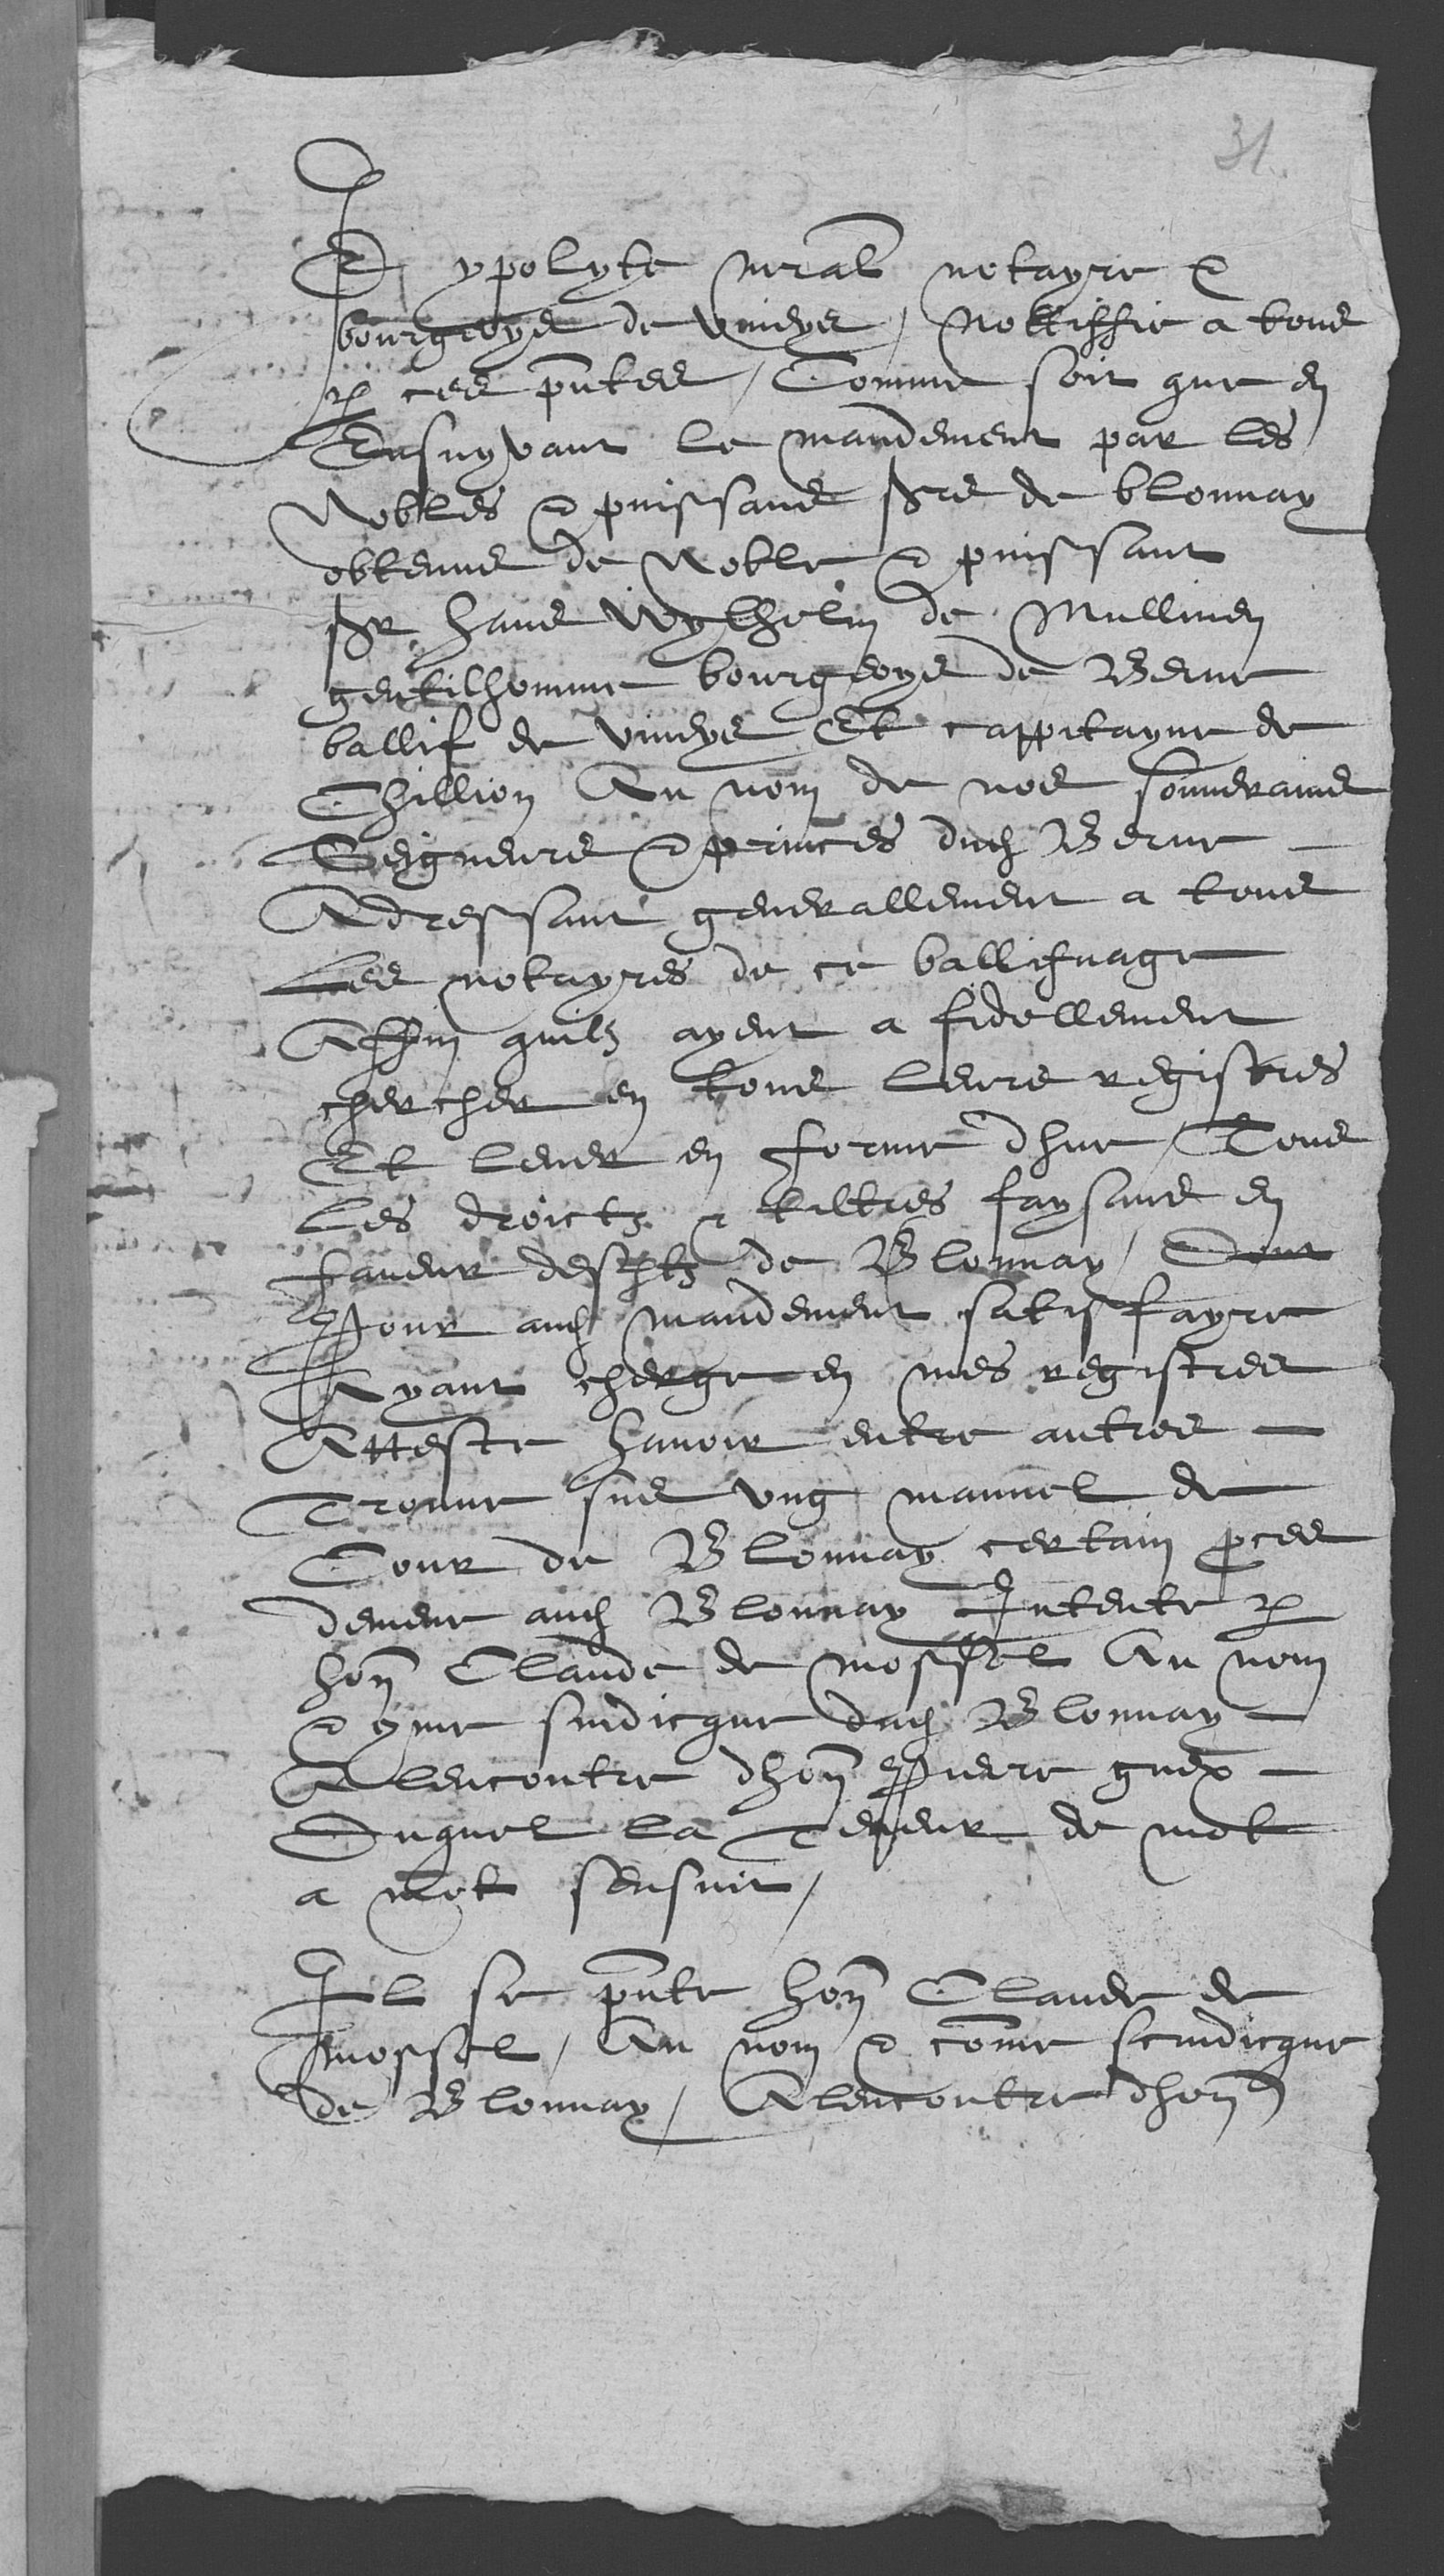 31
Je ypolyte meral notayre &
bourgeoys de viueys / Nottiffie a tous
p ces pntes / Comme soit que en
Ensuyvant le mandement par les
Nobles & puissans srs de blonnay
obtenus de Noble & puissant
sr hans Wylhelm de Mullinen
gentilhomme bourgeoys de Berne
ballif de viueys Et cappitayne de
Chillion Au nom de nos souuerains
Seigneurs & princes dud Berne
Adressant generallement a tous
Les notayres de ce ballifuage
Affin quilz ayent a fidellement
chercher en tous leurs registres
Et leuer en forme dhue / Tous
Les droictz & tiltres faysans en
faueur desdtz de Blonnay / Dont
Pour aud mandement satisfayre
Ayant cherge en mes registres
Atteste hauoir entre autres
Trouue sus vng manuel de
Cour de Blonnay certain pces
demene aud Blonnay Intente p
hon Claude de mossel Au nom
& cme sindicque dud Blonnay
A lencontre dhon Pierre guex
Duquel la Teneur de mot
a mot sensuit /
Il se pnte hon Claude de
mossel / Au nom & come scindicque
de Blonnay / A lencontre dhon